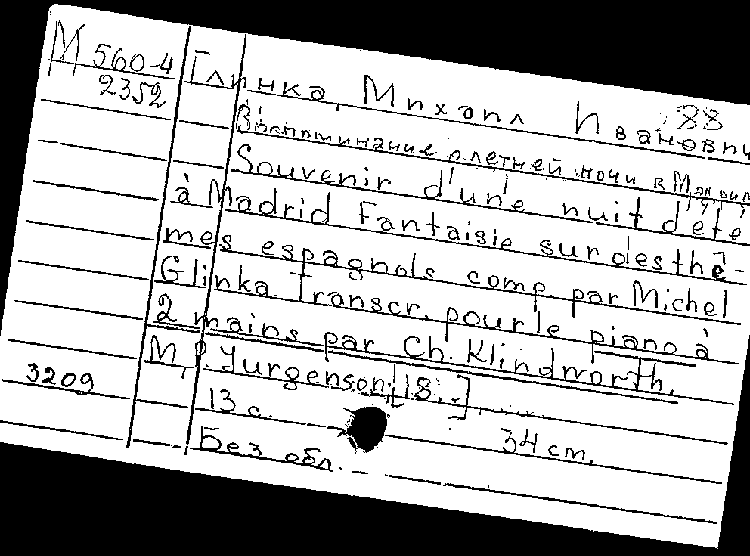 М 560-4
2352
88
Глинка, Михаил Иванович
Воспоминание о летней ночи в Мадриде
Souvenir d'une nuit d'été
à Madrid Fantaisie sur des thê-
mes espagnols comp par Michel
Glinka Transcr. pour le piano à
2 mains par Ch. Klindworth.
М, P. Jurgenson, [18..]
3209
13 с. 34 cm.
Без обл.